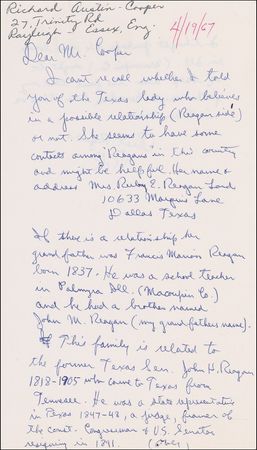 Richard Austin-Cooper
27, Trinity Rd
Rayleigh, Essex, Eng.
4/19/67
Dear Mr. Cooper
I cant recall whether I told
you of the Texas lady who believes
in a possible relationship (Reagan side)
or not. She seems to have some
contacts among "Reagans" in this country
and might be helpful. Her name &
address Mrs Ruby E. Reagan Land
10633 Marquis Lane
Dallas Texas
If there is a relationship her
grandfather was Francis Marion Reagan
born 1837. He was a school teacher
in Palmyra Ill. (Macoupin Co.)
and he had a brother named
John M. Reagan (my grandfathers name).
This family is related to
the former Texas Sen. John H. Reagan
1818-1905 who came to Texas from
Tennesee. He was a state representative
in Texas 1847-48, a judge, framer of
the const. Congressman & U.S. Senator
resigning in 1891. (over)